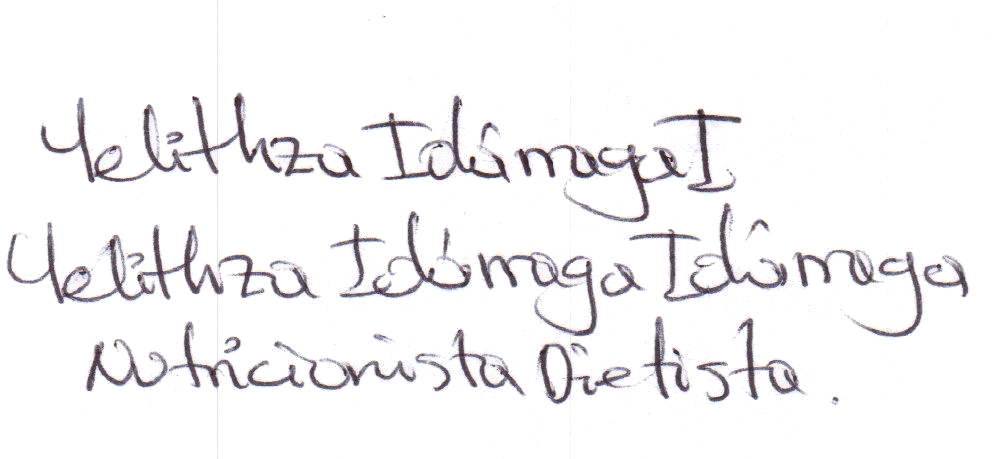 Yelithza Idárraga I
Yelithza Idárraga Idárraga
Nutricionista Dietista.